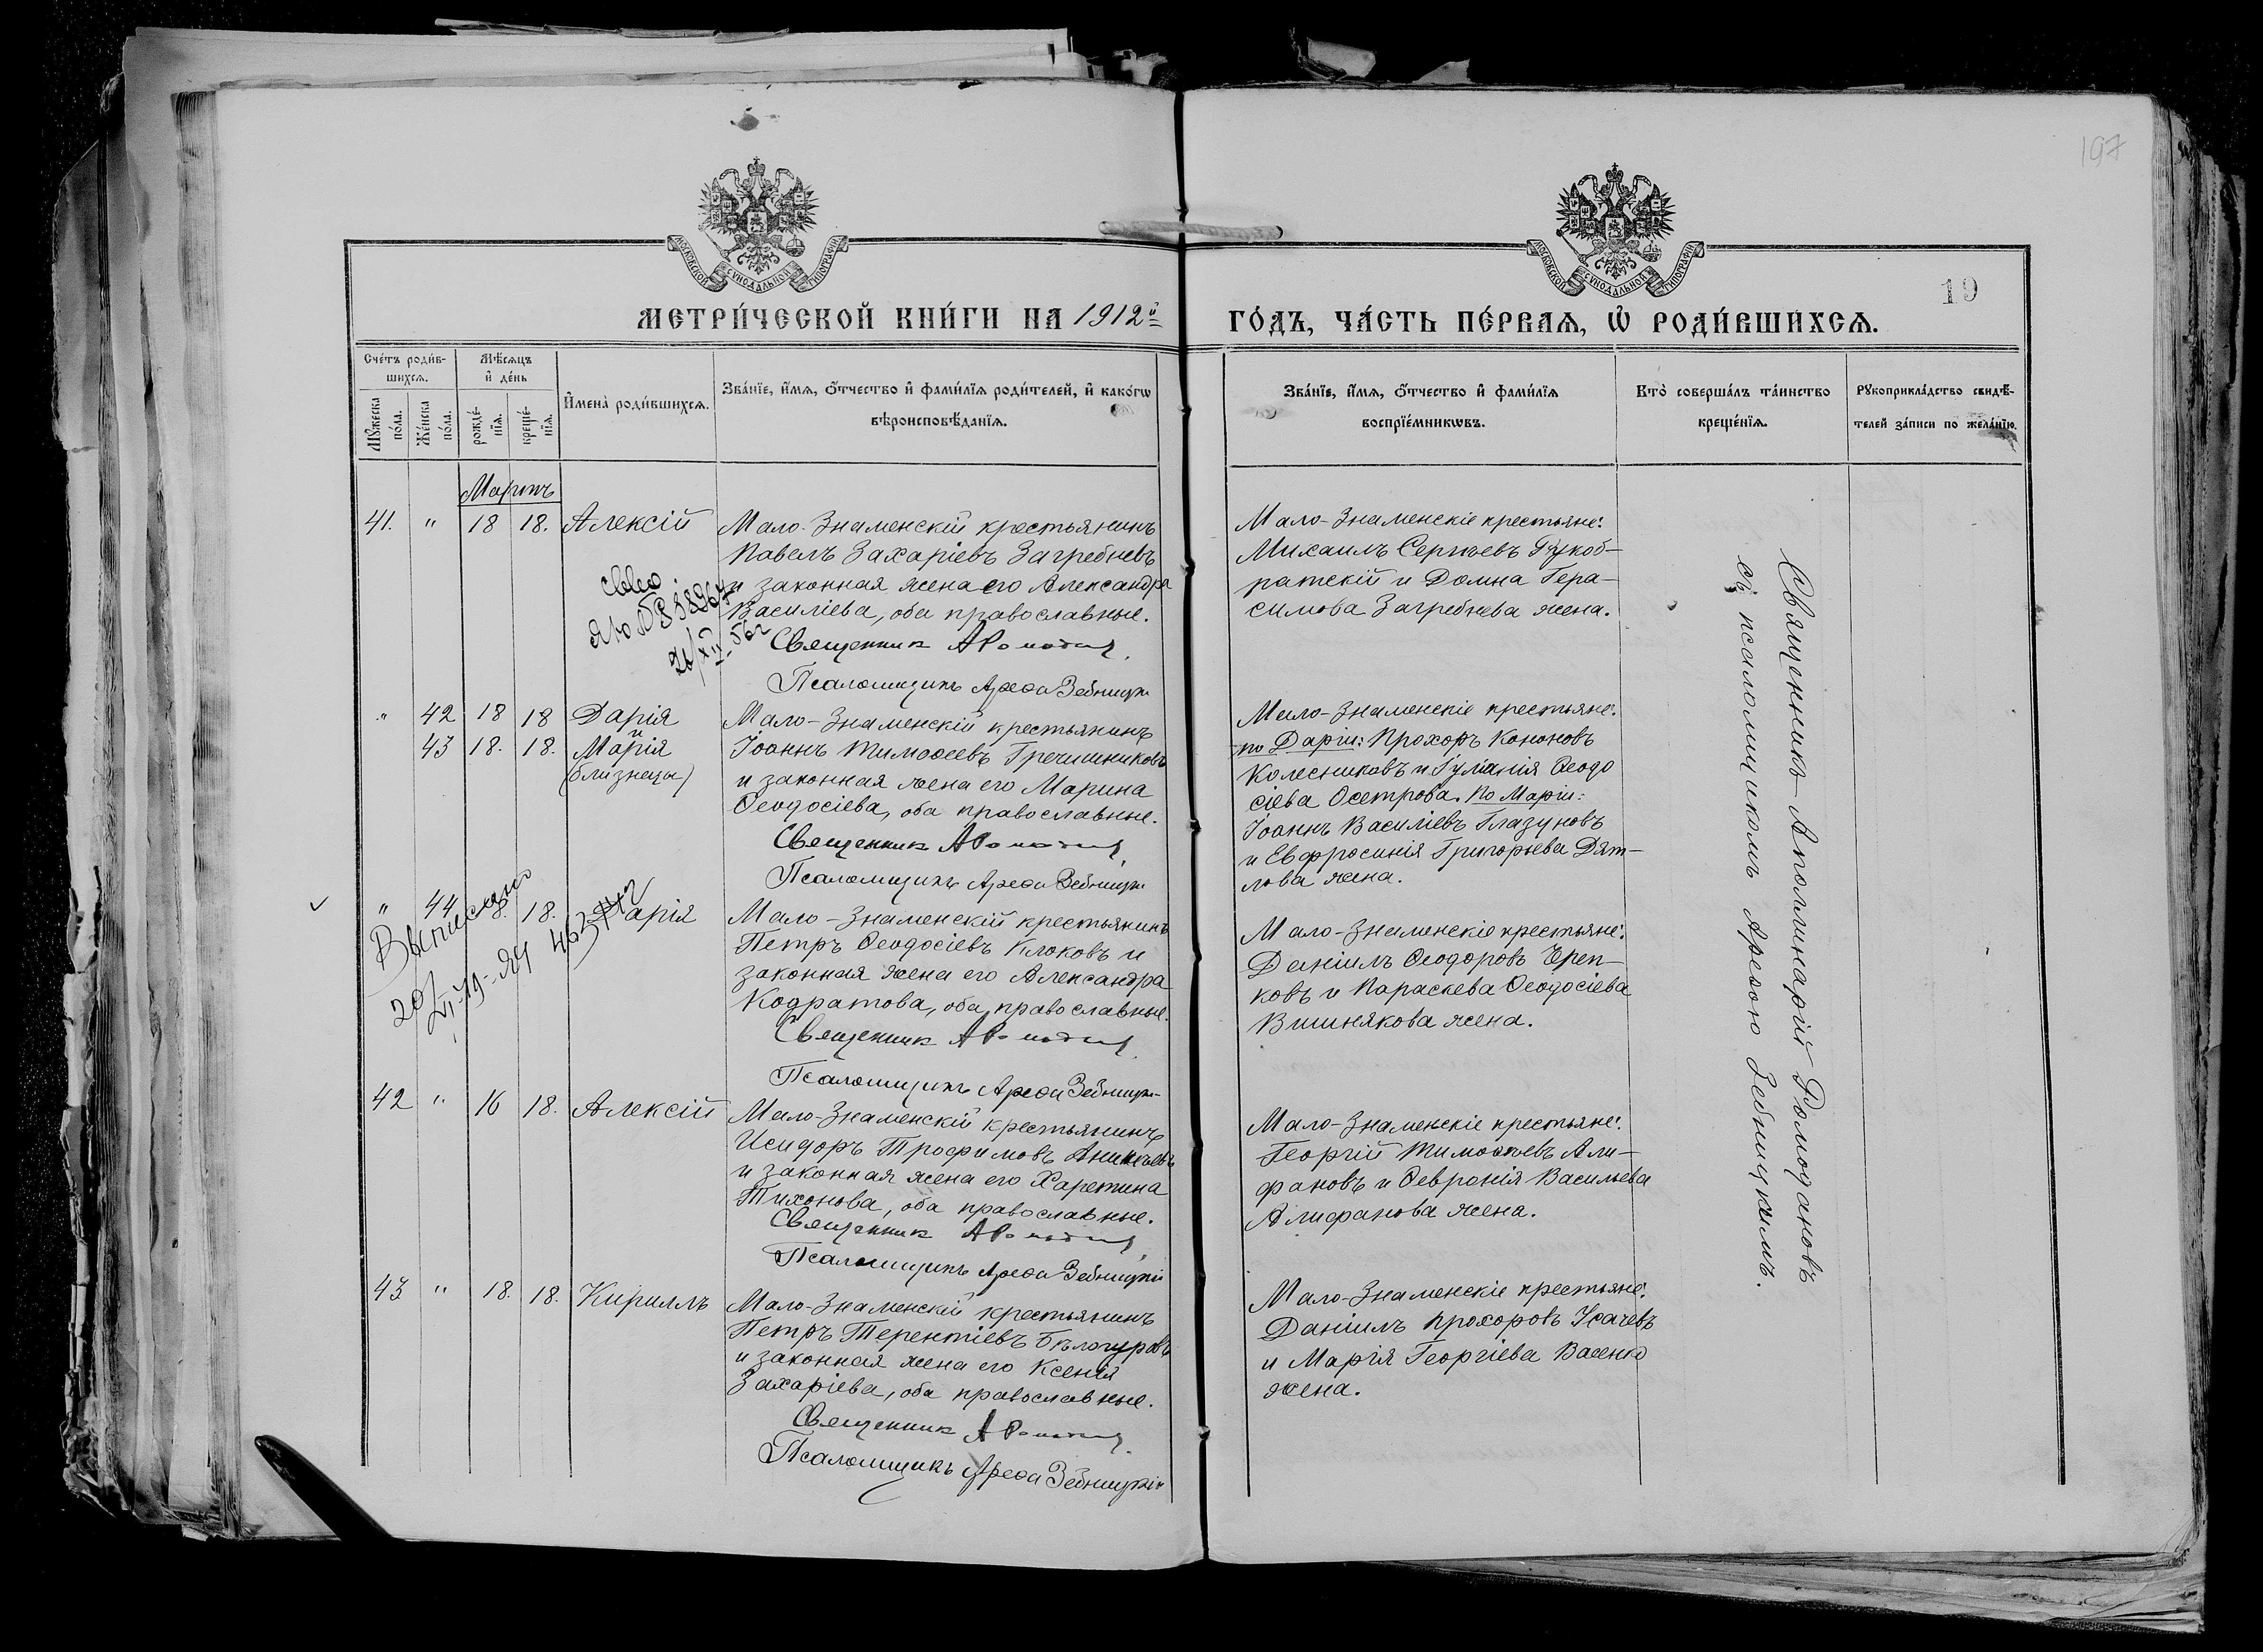 197
19
МОСКОВСКОЙ СѴНОДАЛЬНОЙ ТИПОГРАФІИ
МОСКОВСКОЙ СѴНОДАЛЬНОЙ ТИПОГРАФІИ
МЕТРИ́ЧЕСКОЙ КНИ́ГИ НА 1912й
ГО́ДЪ, ЧА́СТЬ ПЕ́РВАѦ, Ѽ РОДИ́ВШИХСѦ.
Сче́тъ роди́в-
шихсѧ.
Мꙋ́жеска по́ла.
Же́нска по́ла.
Мѣ́сѧцъ
и҆ де́нь
рожде́-
нїѧ.
креще́-
нїѧ.
И҆мена̀ роди́вшихсѧ.
Зва́нїе, и҆́мѧ, ѻ҆́тчество и҆ фами́лїѧ роди́телей, и҆ како́гѡ
вѣроисповѣ́данїѧ.
Зва́нїе, и҆́мѧ, ѻ҆́тчество и҆ фами́лїѧ
воспрїе́мникѡвъ.
Кто̀ соверша́лъ та́инство
креще́нїѧ.
Рꙋкоприкла́дство свидѣ́-
телей за́писи по жела́нїю.
Мартъ
41. " 18 18. Алексій
Мало-Знаменскій крестьянинъ
Павелъ Захаріевъ Загребневъ
и законная жена его Александра
Василіева, оба православные.
Священник
Псаломщикъ Арефа Зебницкі
Мало-Знаменскіе крестьяне:
Михаилъ Сергѣевъ Гукоб-
ратскій и Домна Гера-
симова Загребнева жена.
" 42 18 18 Дарія
и
43 18. 18. Марія
(близнецы)
Мало-Знаменскій крестьянинъ
Іоаннъ Тимоѳеевъ Гречишниковъ
и законная жена его Марина
Ѳеодосіева, оба православные.
Священник
Псаломщикъ Арефа Зебницкі
Мало-Знаменскіе крестьяне:
по Даріи: Прохоръ Кононовъ
Колесниковъ и Гуліанія Ѳеодо
сіева Осетрова. По Маріи:
Іоаннъ Василіевъ Глазуновъ
и Евфросинія Григорьева Дят-
лова жена.
" 44 18. Дарія
Выписано
Мало-Знаменскій крестьянинъ
Петръ Ѳеодосіевъ Клоковъ и
законная жена его Александра
Кодратова, оба православные.
Священник
Псаломщикъ Арефа Зебницкі
Мало-Знаменскіе крестьяне:
Даніилъ Ѳеодоровъ Череп-
ковъ и Параскева Ѳеодосіева
Вишнякова жена.
42 " 16 18. Алексій
Мало-Знаменскій крестьянинъ
Исидоръ Трофимовъ Аникѣевъ
и законная жена его Харетина
Тихонова, оба православные.
Священник
Псаломщикъ Арефа Зебницкій
Мало-Знаменскіе крестьяне:
Георгій Тимоѳеевъ Али-
фановъ и Ѳевронія Васильева
Алифанова жена.
43 " 18. 18. Кириллъ
Мало-Знаменскій крестьянинъ
Петръ Терентіевъ Бѣлогуровъ
и законная жена его Ксенія
Захаріева, оба православные.
Священник
Псаломщикъ Арефа Зебницкій
Мало-Знаменскіе крестьяне:
Даніилъ Прохоровъ Усачевъ
и Марія Георгіева Васенко
жена.
Священникъ Аполлинарій Ромодановъ
съ псаломщикомъ Арефою Зебницкимъ.